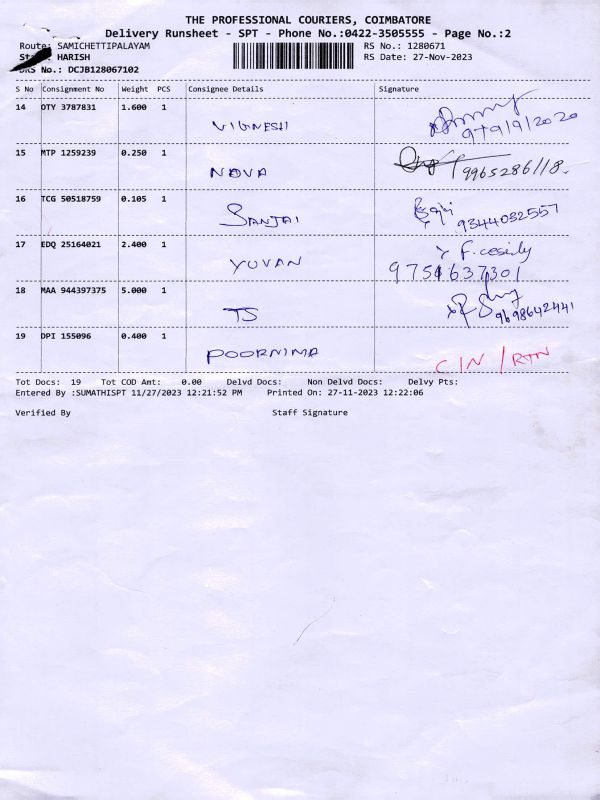 THE PROFESSIONAL COURIERS, COIMBATORE
Delivery Runsheet - SPT - Phone No.:0422-3505555 - Page No.:2
Route: SAMICHETTIPALAYAM RS No.: 1280671
HARISH RS Date: 27-Nov-2023
No.: DCJB128067102
S No Consignment No Weight PCS Consignee Details Signature
14 OTY 3787831 1.600 1 VIGNESH
15 MTP 1259239 0.250 1 NOVA 9965286118.
16 TCG 50518759 0.105 1 SANJAI 9344032557
17 EDQ 25164021 2.400 1 YUVAN
9751637301
18 MAA 944397375 5.000 1 TS 9698642441
19 DPI 155096 0.400 1 POORNIMA C/N / RTN
Tot Docs: 19 Tot COD Amt: 0.00 Delvd Docs: Non Delvd Docs: Delvy Pts:
Entered By :SUMATHISPT 11/27/2023 12:21:52 PM Printed On: 27-11-2023 12:22:06
Verified By Staff Signature